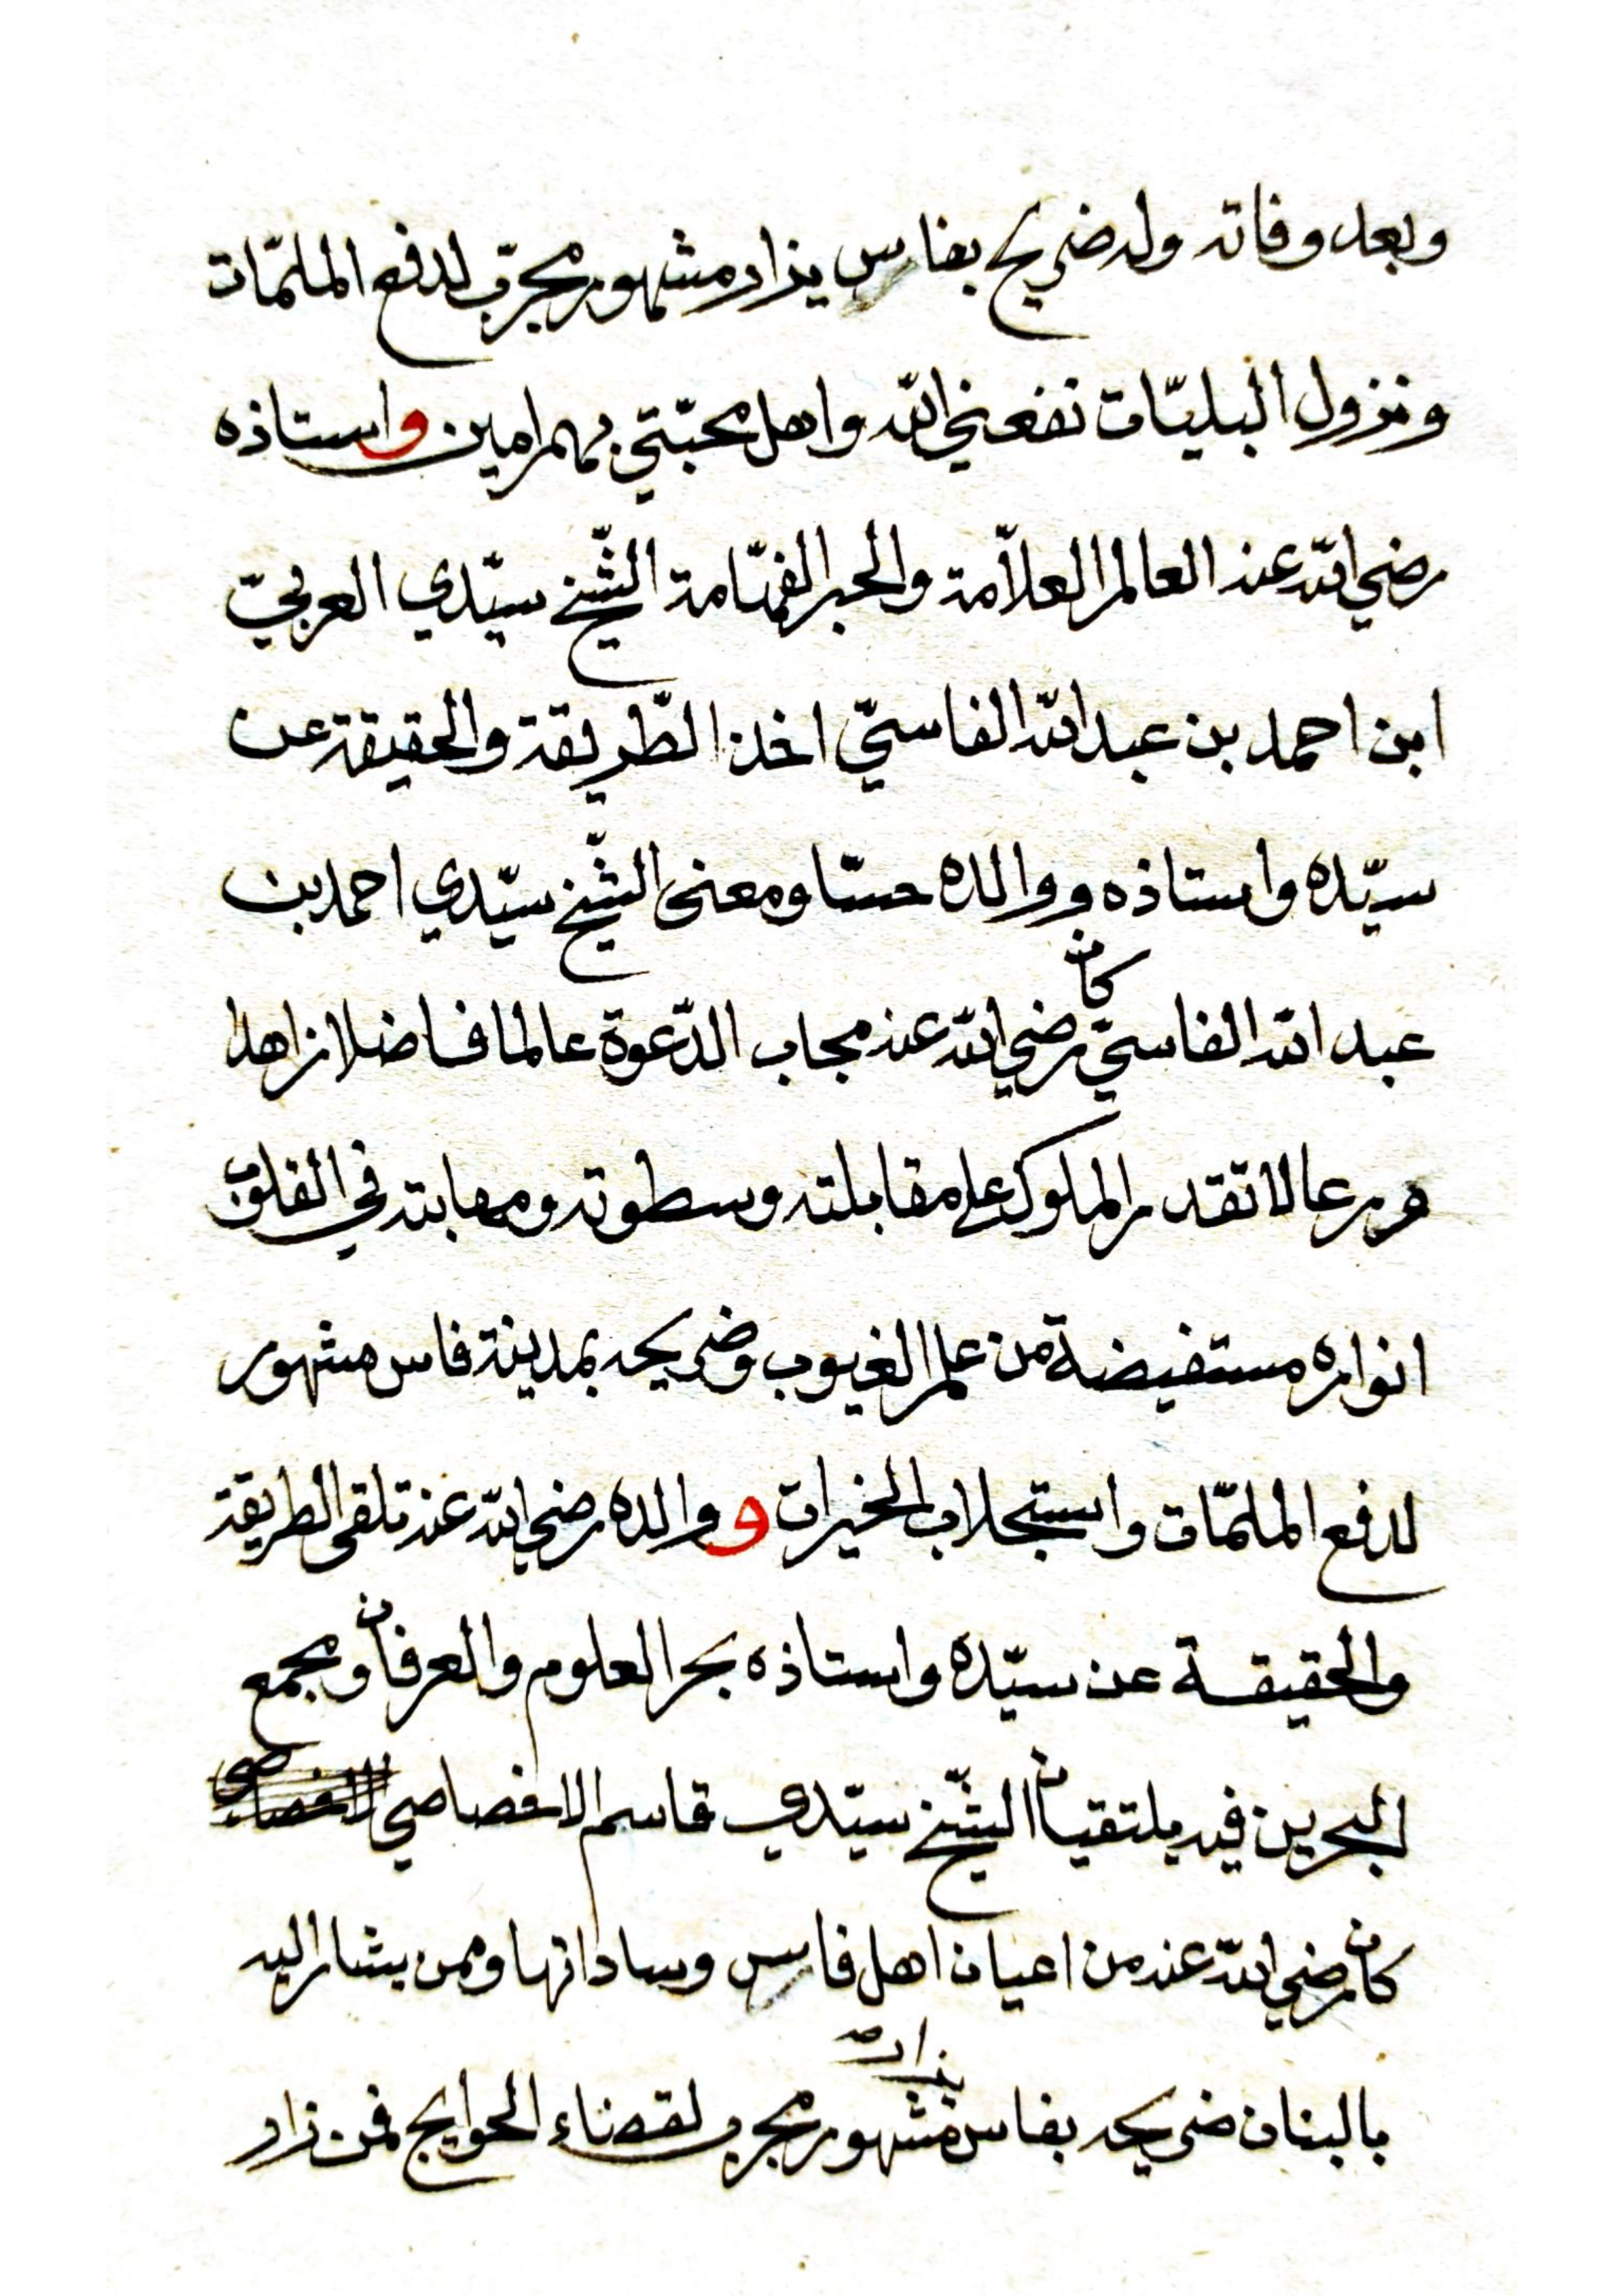 وبعد وفاته وله ضريح بفاس يزار مشهور مجرّب لدفع الملمّات
ونزول البليّات نفعني الله واهل محبّتي بهم امين واستاذه
رضي الله عنه العالم العلاّمة والحبر الفهّامة الشّيخ سيّدي العربيّ
ابن احمد بن عبد الله الفاسيّ اخذ الطّريقة والحقيقة عن
سيّده واستاذه ووالده حسّا ومعنى الشّيخ سيّدي احمد بن
عبد الله الفاسيّ كان رضي الله عنه مجاب الدّعوة عالما فاضلا زاهدا
ورعا لا تقدر الملوك على مقابلته وسطوته ومهابته في القلوب
انواره مستفيضة من علم الغيوب وضريحه بمدينة فاس مشهور
لدفع الملمّات واستجلاب الخيرات ووالده رضي الله عنه تلقى الطريقة
والحقيقة عن سيّده واستاذه بحر العلوم والعرفان ومجمع
البحرين فيه يلتقيان الشّيخ سيّدي قاسم الاخصاصي
كان رضي الله عنه من اعيان اهل فاس وساداتها وممن يشار اليه
بالبنان ضريحه بفاس يزار مشهور مجرب لقضاء الحوايج فمن زار